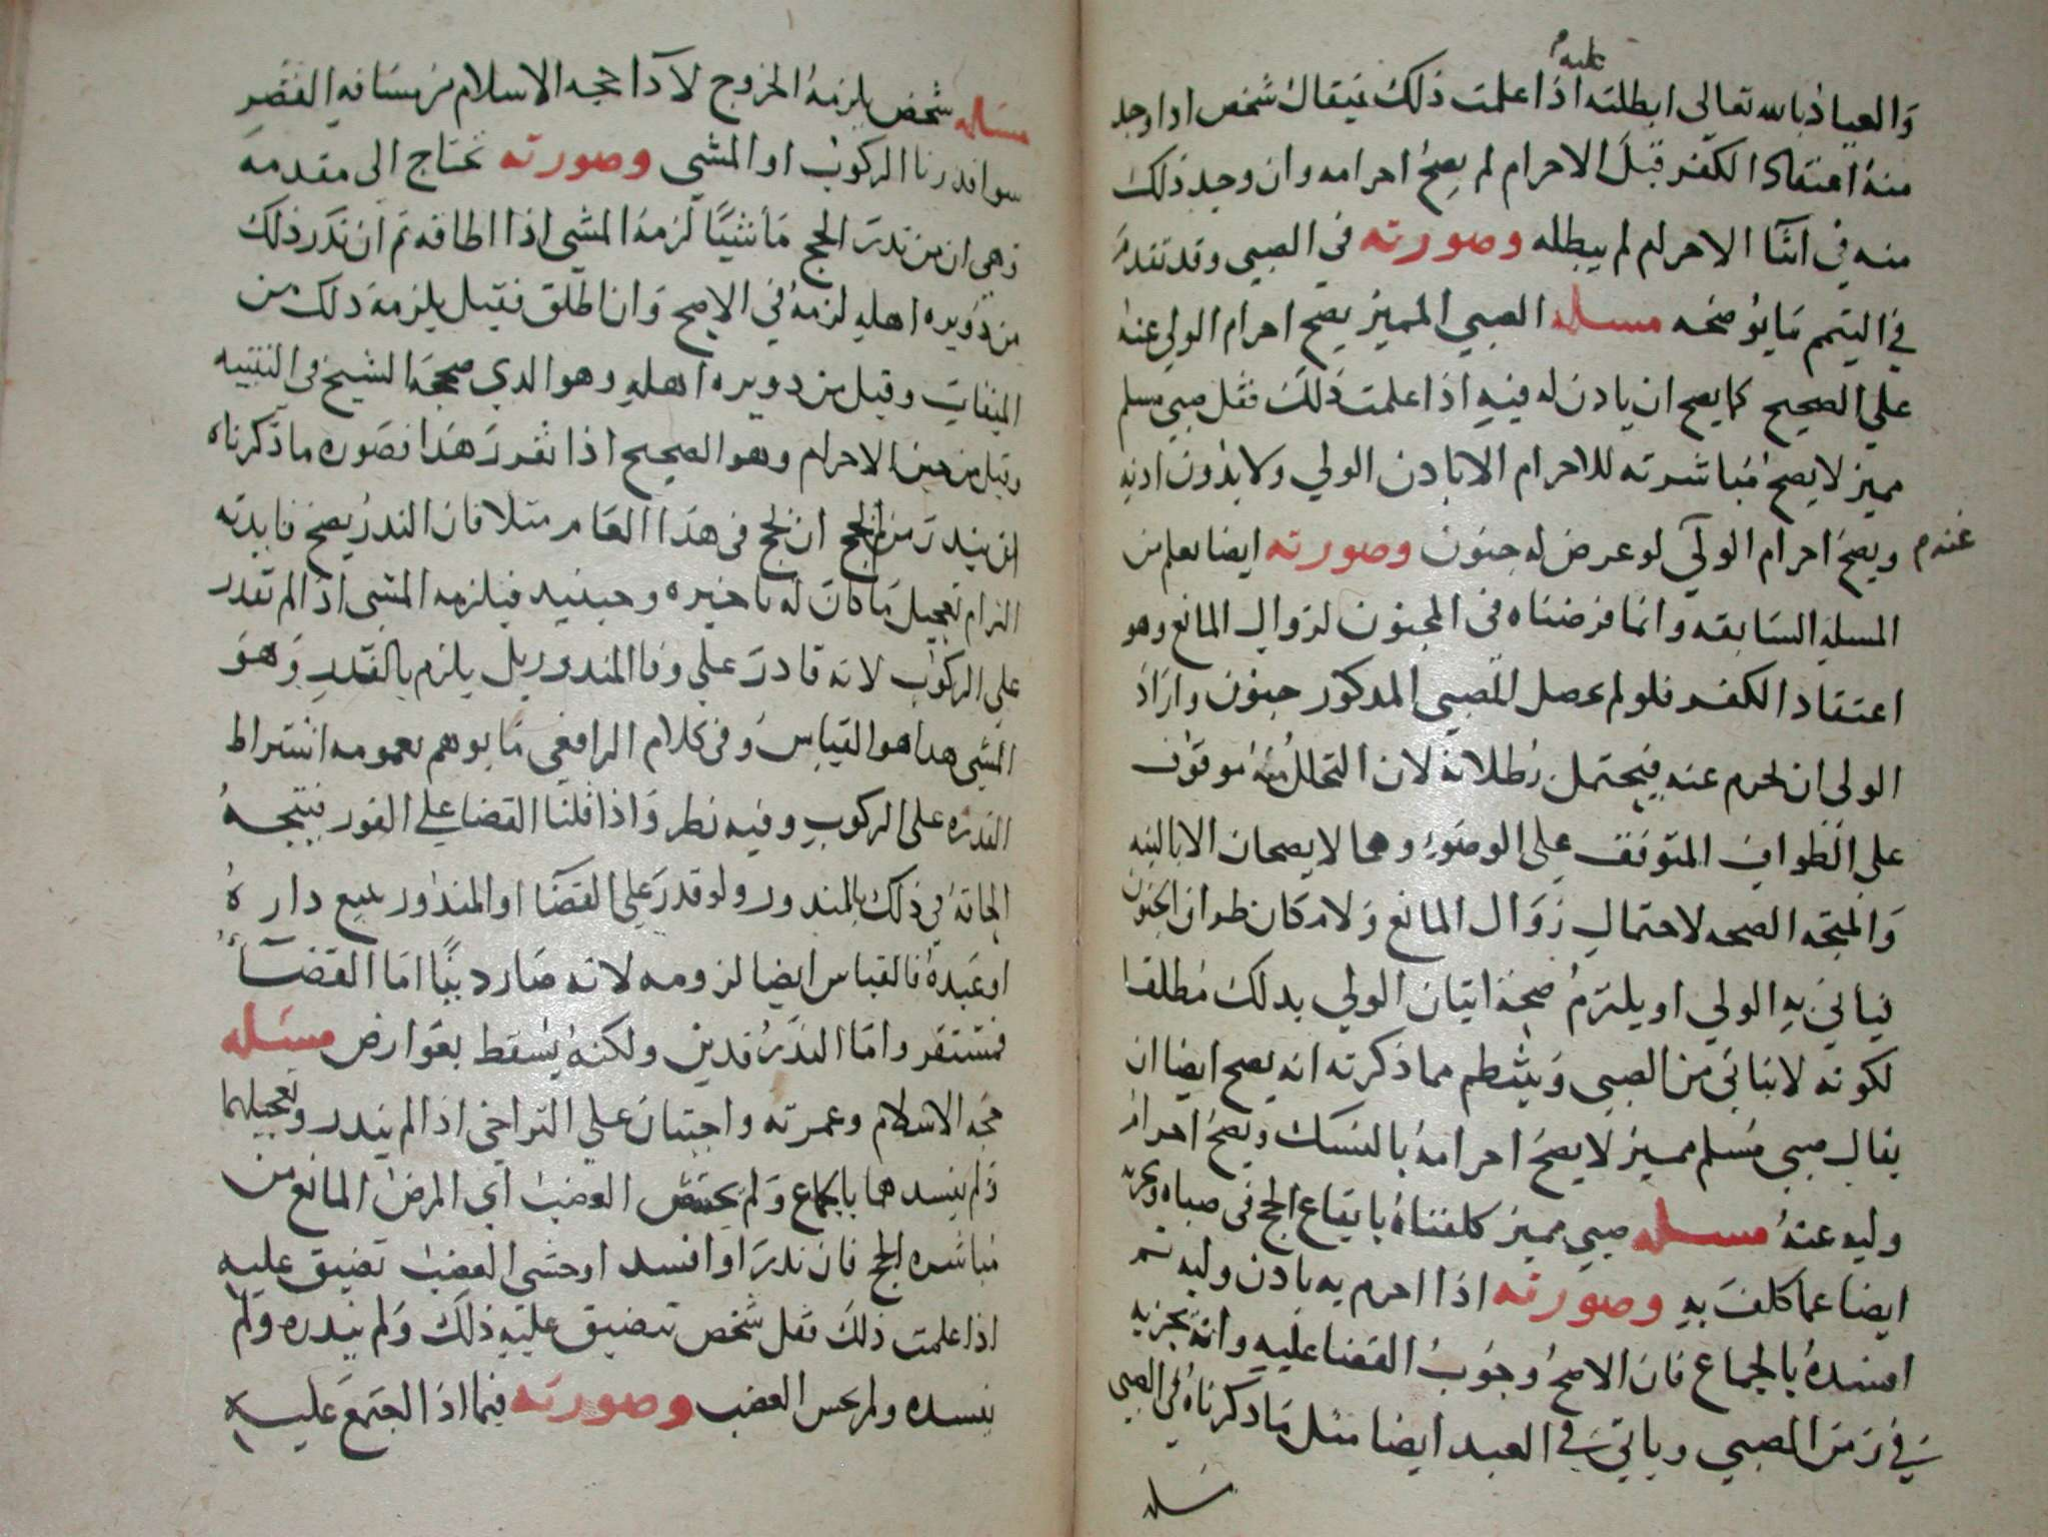 عليه م
والعياذ بالله تعالى ابطلته اذا علمت ذلك فيقال شخص اذا وجد
منه اعتقاد الكفر قبل الاحرام لم يصح احرامه وان وجد ذلك
منه في اثنا الاحرام لم يبطله وصورته في الصبي وقد تقدم
في التيمم ما يوضحه مسله الصبي المميز يصح احرام الولي عنه
علي الصحيح كما يصح ان ياذن له فيه اذا علمت ذلك فقل صبي مسلم
مميز لا يصح مباشرته للاحرام الا باذن الولي ولا بدون اذنه
ويصح احرام الولي لو عرض له جنون وصورته ايضا يعلم من
عنه م
المسله السابقه وانما فرضناه في المجنون لزوال المانع وهو
اعتقاد الكفر فلو لم يحصل للصبي المذكور جنون واراد
الولي ان يحرم عنه فيحتمل بطلانه لان التحلل منه موقوف
على الطواف المتوقف على الوضوء وهما لا يصحان الا بالنيه
والمتجه الصحه لاحتمال زوال المانع ولامكان طواف الجنون
فياتي به الولي او يلتزم صحة اتيان الولي بذلك مطلقا
لكونه لا يتاتي من الصبي وينتظم مما ذكرته انه يصح ايضا ان
يقال صبي مسلم مميز لا يصح احرامه بالنسك ويصح احرام
وليه عنه مسله صبي مميز كلفناه بايقاع الحج في صباه ويجزيه
ايضا عما كلف به وصورته اذا احرم به باذن وليه ثم
افسده بالجماع فان الاصح وجوب القضا عليه وانه يجزيه
في زمن الصبي وياتي في العبد ايضا مثل ما ذكرناه في الصبي
مسله
مسله شخص يلزمه الخروج لادا حجه الاسلام من مسافه القصر
سوا قدرنا الركوب او المشي وصورته تحتاج الى مقدمه
وهي ان من نذر الحج ماشيا لزمه المشي اذا اطاقه ثم ان نذر ذلك
من دويره اهله لزمه في الاصح وان اطلق فقيل يلزمه ذلك من
الميقات وقيل من دويره اهله وهو الذي صححه الشيخ في التنبيه
وقيل من حين الاحرام وهو الصحيح اذا تقرر هذا فصوره ما ذكرناه
ان ينذر من الحج ان يحج في هذا العام مثلا فان النذر يصح فايدته
التزام تعجيل ما كان له تاخيره وحينيذ فيلزمه المشي اذا لم تقدر
على الركوب لانه قادر على وفا المنذور بل يلزم بالقدر وهو
المشي هذا هو القياس وفي كلام الرافعي ما يوهم بعمومه اشتراط
القدره على الركوب وفيه نظر واذا قلنا القضا على الفور فيتجه
الحاقه في ذلك بالمنذور ولو قدر على القضا او المنذور ببيع داره
او عبده فالقياس ايضا لزومه لانه صار دينا اما القضا
فمستقر واما النذر فدين ولكنه يسقط بعوارض مسله
حجه الاسلام وعمرته واجبتان علي التراخي اذا لم ينذر وتعجيلهما
ولم يفسدهما بالجماع ولم يخش العضب اي المرض المانع من
مباشره الحج فان نذر او افسد او خشي العضب تضيق عليه
اذا علمت ذلك فقل شخص تضيق عليه ذلك ولم ينذره ولم
يفسده ولم يخش العضب وصورته فيما اذا اجتمع عليه